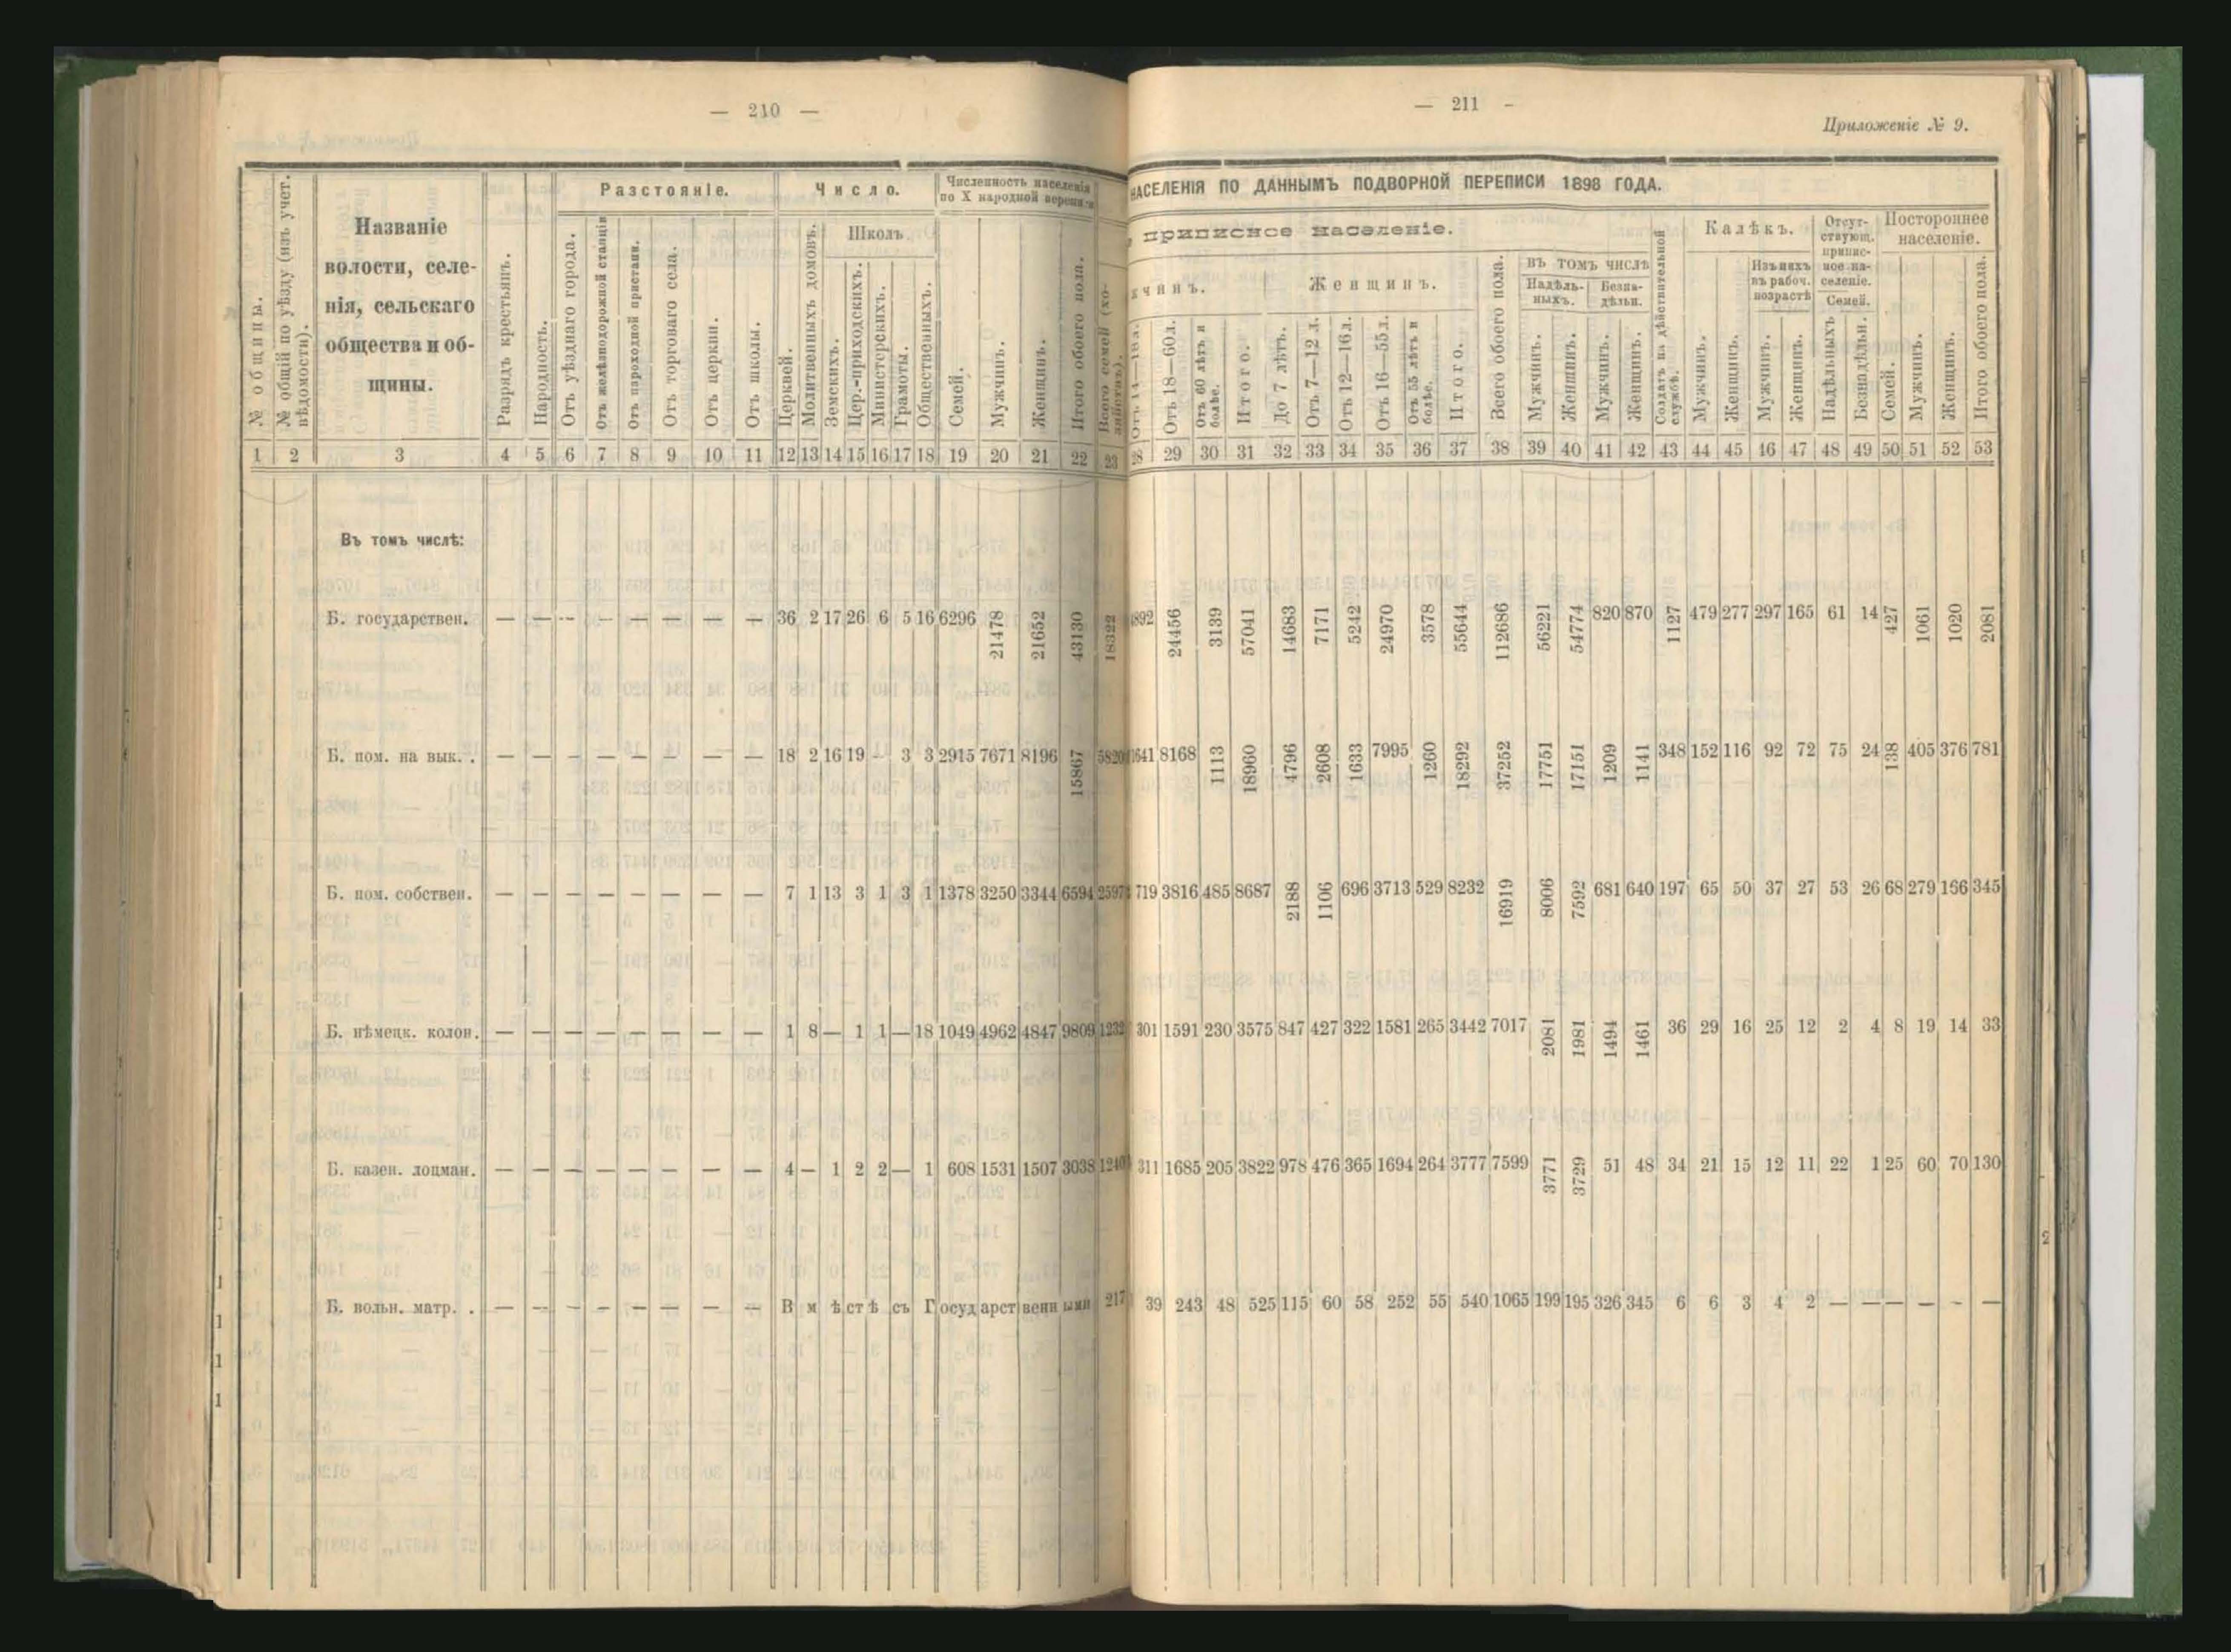 — 210 —
Разстояніе.
Число.
Численность населенія
по X народной перепи-и
Школъ
№ общины.
№ общій по уѣзду (изъ учет. вѣдомости).
Названіе
волости, селе-
нія, сельскаго
общества и об-
щины.
Разрядъ крестьянъ.
Народность.
Отъ уѣзднаго города.
Отъ желѣзнодорожной станціи
Отъ пароходной пристани.
Отъ торговаго села.
Отъ церкви.
Отъ школы.
Церквей.
Молитвенныхъ домовъ.
Земскихъ.
Цер.-приходскихъ.
Министерскихъ.
Грамоты.
Общественныхъ.
Семей.
Мужчинъ.
Женщинъ.
Итого обоего пола.
Всего семей (хо-
зяйствъ).
1 2 3 4 5 6 7 8 9 10 11 12 13 14 15 16 17 18 19 20 21 22 23
Въ томъ числѣ:
Б. государствен. — — -- — — — — — 36 2 17 26 6 5 16 6296 21478 21652 43130 18322
Б. пом. на вык. . — — — — — — — — 18 2 16 19 — 3 3 2915 7671 8196 15867 5820
Б. пом. собствен. — — — — — — — — 7 1 13 3 1 3 1 1378 3250 3344 6594 2597
Б. нѣмецк. колон. — — — — — — — — 1 8 — 1 1 — 18 1049 4962 4847 9809 1232
Б. казен. лоцман. — — — — — — — — 4 — 1 2 2 — 1 608 1531 1507 3038 1240
Б. вольн. матр. . — -- — — — — — — В м ѣст ѣ съ Г осуд арст венн ыми 217
— 211 -
Приложеніе № 9.
НАСЕЛЕНІЯ ПО ДАННЫМЪ ПОДВОРНОЙ ПЕРЕПИСИ 1898 ГОДА.
, приписное населеніе.
Калѣкъ.
Отсут-
ствующ.
припис-
ное на-
селеніе.
Постороннее
населеніе.
чинъ.
Женщинъ.
въ томъ числѣ
Надѣль-
ныхъ.
Безна-
дѣльн.
Изъ нихъ
въ рабоч.
возрастѣ
Семей.
Отъ 18—60 л.
Отъ 60 лѣтъ и
болѣе.
Итого.
До 7 лѣтъ.
Отъ 7—12 л.
Отъ 12—16 л.
Отъ 16—55 л.
Отъ 55 лѣтъ и
болѣе.
Итого.
Всего обоего пола.
Мужчинъ.
Женщинъ.
Мужчинъ.
Женщинъ.
Солдатъ на дѣйствительной
службѣ.
Мужчинъ.
Женщинъ.
Мужчинъ.
Женщинъ.
Надѣльныхъ
Безнадѣльн.
Семей.
Мужчинъ.
Женщинъ.
Итого обоего пола.
28 29 30 31 32 33 34 35 36 37 38 39 40 41 42 43 44 45 16 47 48 49 50 51 52 53
892 24456 3139 57041 14683 7171 5242 24970 3578 55644 112686 56221 54774 820 870 1127 479 277 297 165 61 14 427 1061 1020 2081
641 8168 1113 18960 4796 2608 1633 7995 1260 18292 37252 17751 17151 1209 1141 348 152 116 92 72 75 24 138 405 376 781
719 3816 485 8687 2188 1106 696 3713 529 8232 16919 8006 7592 681 640 197 65 50 37 27 53 26 68 279 166 345
301 1591 230 3575 847 427 322 1581 265 3442 7017 2081 1981 1494 1461 36 29 16 25 12 2 4 8 19 14 33
311 1685 205 3822 978 476 365 1694 264 3777 7599 3771 3729 51 48 34 21 15 12 11 22 1 25 60 70 130
39 243 48 525 115 60 58 252 55 540 1065 199 195 326 345 6 6 3 4 2 — — — — - —